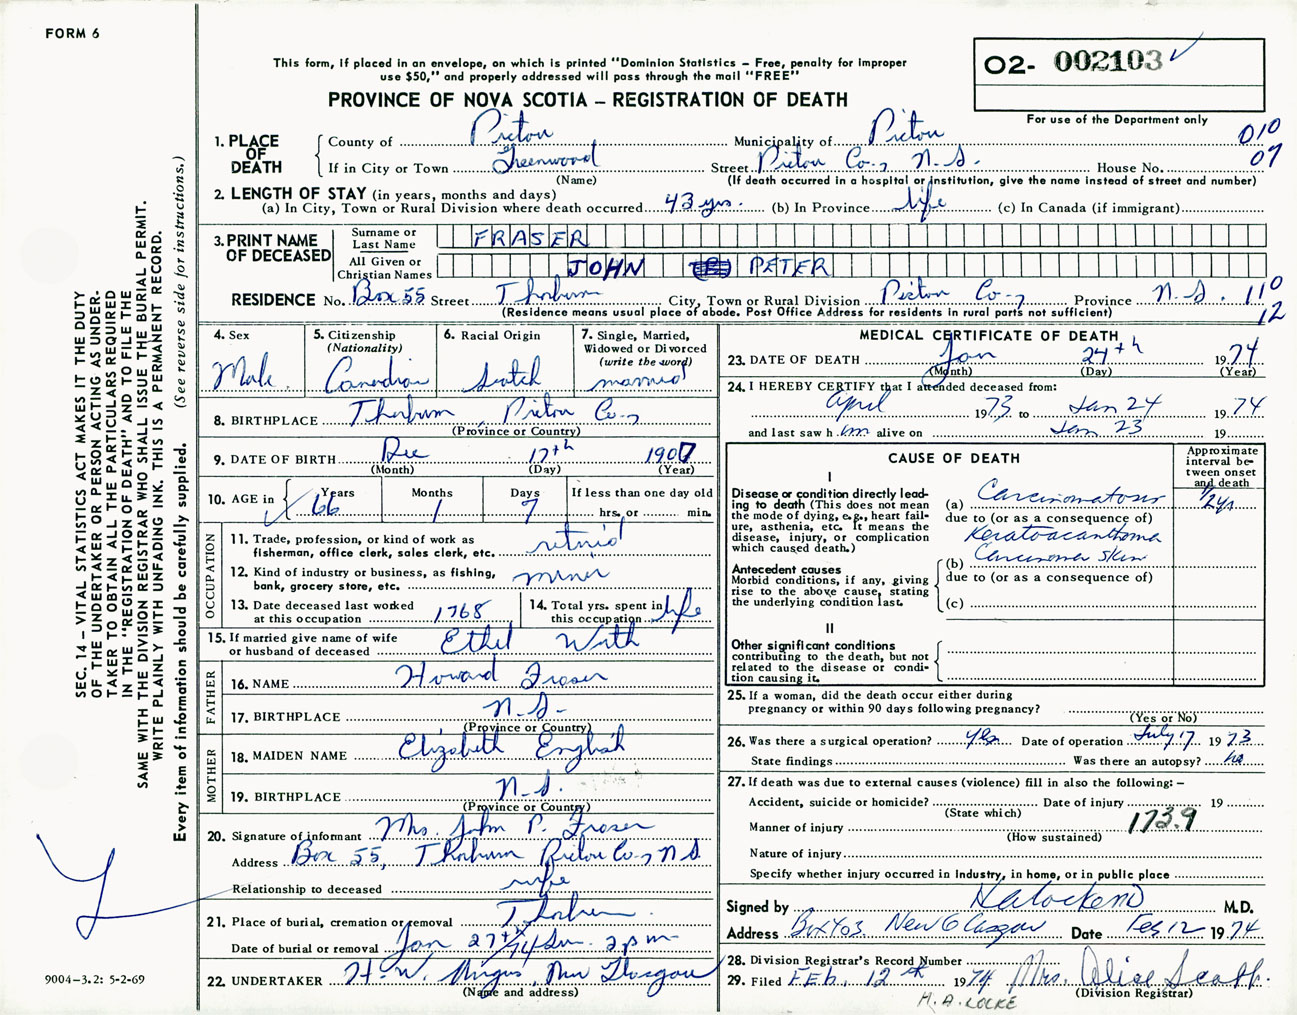 FORM 6
This form, if placed in an envelope, on which is printed "Dominion Statistics – Free, penalty for improper
use $50," and properly addressed will pass through the mail "FREE"
PROVINCE OF NOVA SCOTIA – REGISTRATION OF DEATH
O2- 002103
For use of the Department only
1. PLACE OF DEATH
County of Pictou Municipality of Pictou 010
If in City or Town Greenwood Street Pictou Co., N.S. House No. 07
(Name) (If death occurred in a hospital or institution, give the name instead of street and number)
2. LENGTH OF STAY (in years, months and days)
(a) In City, Town or Rural Division where death occurred 43 yrs. (b) In Province life (c) In Canada (if immigrant)
3. PRINT NAME OF DECEASED
Surname or Last Name FRASER
All Given or Christian Names JOHN PETER
RESIDENCE No. Box 55 Street Thorburn City, Town or Rural Division Pictou Co., Province N.S. 110
(Residence means usual place of abode. Post Office Address for residents in rural parts not sufficient) 12
4. Sex
Male
5. Citizenship
(Nationality)
Canadian
6. Racial Origin
Scotch
7. Single, Married,
Widowed or Divorced
(write the word)
married
8. BIRTHPLACE Thorburn, Pictou Co.,
(Province or Country)
9. DATE OF BIRTH Dec 17th 1907
(Month) (Day) (Year)
10. AGE in Years 66 Months 1 Days 7 If less than one day old
hrs. or min.
OCCUPATION
11. Trade, profession, or kind of work as
fisherman, office clerk, sales clerk, etc. retired
12. Kind of industry or business, as fishing,
bank, grocery store, etc. miner
13. Date deceased last worked
at this occupation 1968
14. Total yrs. spent in
this occupation life
15. If married give name of wife
or husband of deceased Ethel
FATHER
16. NAME Howard Fraser
17. BIRTHPLACE N.S.
(Province or Country)
MOTHER
18. MAIDEN NAME Elizabeth English
19. BIRTHPLACE N.S.
(Province or Country)
20. Signature of informant Mrs. John P. Fraser
Address Box 55, Thorburn Pictou Co., N.S.
Relationship to deceased wife
21. Place of burial, cremation or removal Thorburn.
Date of burial or removal Jan 27th/74 2 pm
22. UNDERTAKER H. W. Angus, New Glasgow
(Name and address)
MEDICAL CERTIFICATE OF DEATH
23. DATE OF DEATH Jan 24th 1974
(Month) (Day) (Year)
24. I HEREBY CERTIFY that I attended deceased from:
April 1973 to Jan 24 1974
and last saw him alive on Jan 23 19
CAUSE OF DEATH
Approximate
interval be-
tween onset
and death
I
Disease or condition directly lead-
ing to death (This does not
mean the mode of dying, e.g., heart fail-
ure, asthenia, etc. It means the
disease, injury, or complication
which caused death.)
(a) Carcinomatosis 1/2 yr
due to (or as a consequence of)
Keratoacanthoma
(b) Carcinoma skin
due to (or as a consequence of)
(c)
Antecedent causes
Morbid conditions, if any, giving
rise to the above cause, stating
the underlying condition last.
II
Other significant conditions
contributing to the death, but not
related to the disease or condi-
tion causing it.
25. If a woman, did the death occur either during
pregnancy or within 90 days following pregnancy?
(Yes or No)
26. Was there a surgical operation? yes Date of operation July 17 1973
State findings Was there an autopsy? no
27. If death was due to external causes (violence) fill in also the following: –
Accident, suicide or homicide? Date of injury 19
(State which)
Manner of injury 173.9
(How sustained)
Nature of injury
Specify whether injury occurred in Industry, in home, or in public place
Signed by H A Locke MD M.D.
Address Box 403 New Glasgow Date Feb 12 1974
28. Division Registrar's Record Number
29. Filed FEB. 12 1974 Mrs. Alice Scott.
(Division Registrar)
H. A. LOCKE
SEC. 14 – VITAL STATISTICS ACT MAKES IT THE DUTY
OF THE UNDERTAKER OR PERSON ACTING AS UNDER-
TAKER TO OBTAIN ALL THE PARTICULARS REQUIRED
IN THE "REGISTRATION OF DEATH" AND TO FILE THE
SAME WITH THE DIVISION REGISTRAR WHO SHALL ISSUE THE BURIAL PERMIT.
WRITE PLAINLY WITH UNFADING INK. THIS IS A PERMANENT RECORD.
Every item of Information should be carefully supplied. (See reverse side for instructions.)
9004–3.2: 5-2-69